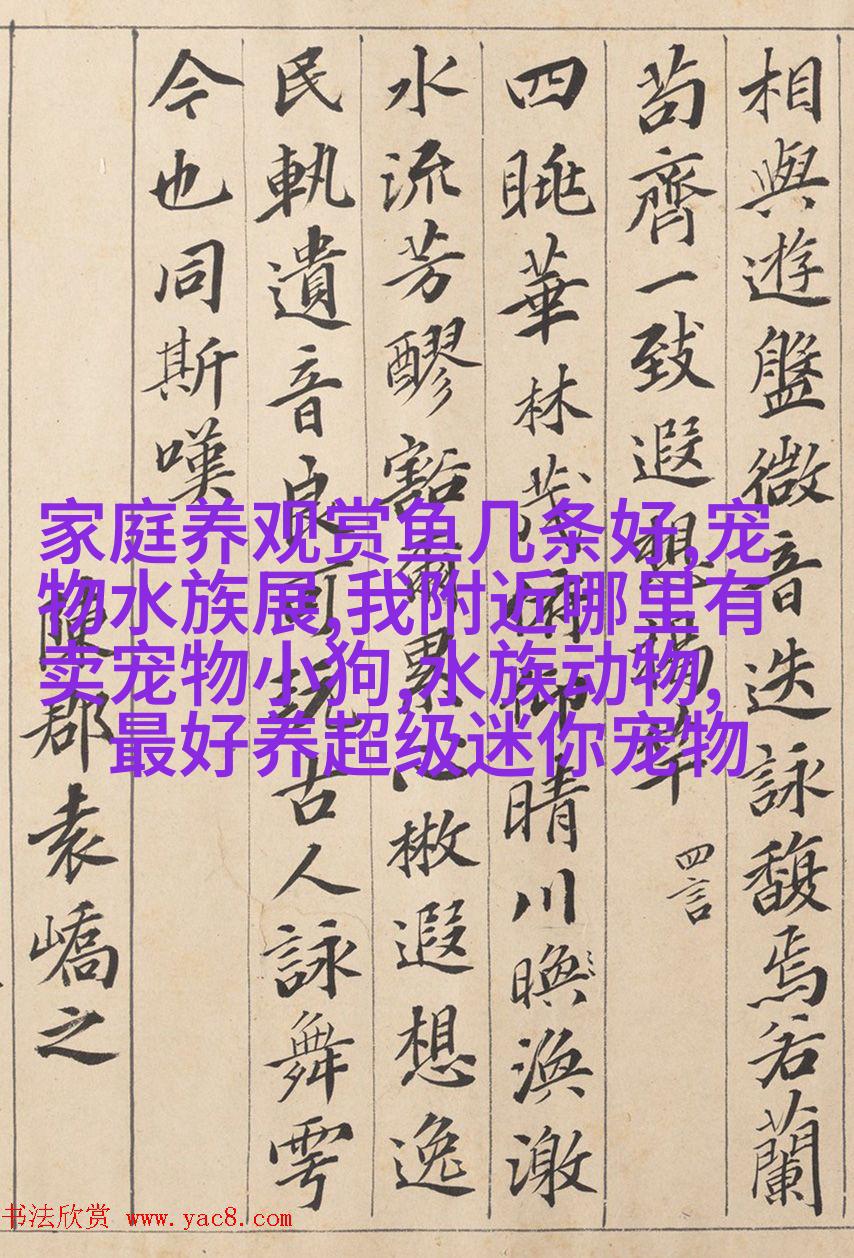 相與遊盤微音迭詠馥焉若蘭
苟齊一致遐想揭竿 四言
四眺華林茂俯仰晴川㬇渙激
水流芳醪豁爾累心㪚遐想逸
民軌遺音良可玩古人詠舞雩
今也同斯嘆
陳郡袁嶠之
家庭养观赏鱼几条好,宠
物水族展,我附近哪里有
卖宠物小狗,水族动物,
最好养超级迷你宠物
书法欣赏 www.yac8.com